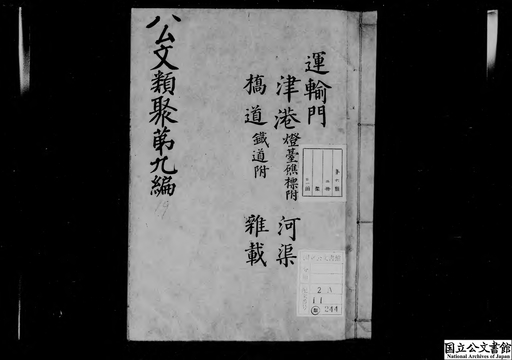 運輸門
津港 燈臺礁標附 河渠
橋道 鐵道附 雜載
公文類聚第九編
19
2 A
11
244
国立公文書館
National Archives of Japan